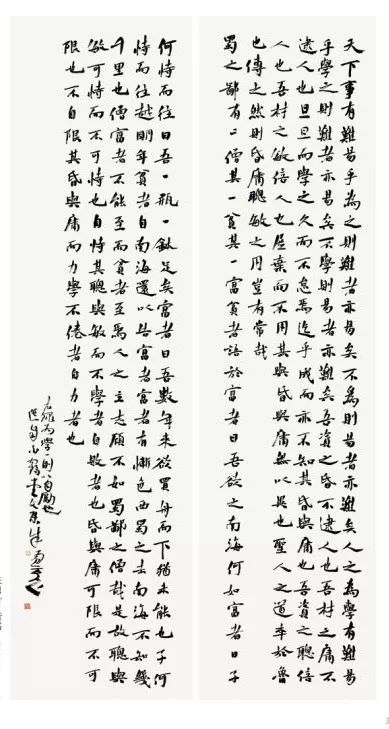 天下事有難易乎為之則難者亦易矣不為則易者亦難矣人之為學有難易
乎學之則難者亦易矣不學則易者亦難矣吾資之昏不逮人也吾材之庸不
逮人也旦旦而學之久而不怠焉迄乎成而亦不知其昏與庸也吾資之聰倍
人也吾材之敏倍人也屏棄而不用其與昏與庸無以異也聖人之道卒於魯
也傳之然則昏庸聰敏之用豈有常哉
蜀之鄙有二僧其一貧其一富貧者語於富者曰吾欲之南海何如富者曰子
何恃而往曰吾一瓶一鉢足矣富者曰吾數年來欲買舟而下猶未能也子何
恃而往越明年貧者自南海還以告富者富者有慚色西蜀之去南海不知幾
千里也僧富者不能至而貧者至焉人之立志顧不如蜀鄙之僧哉是故聰與
敏可恃而不可恃也自恃其聰與敏而不學者自敗者也昏與庸可限而不可
限也不自限其昏與庸而力學不倦者自力者也
為學一則自勵也
3